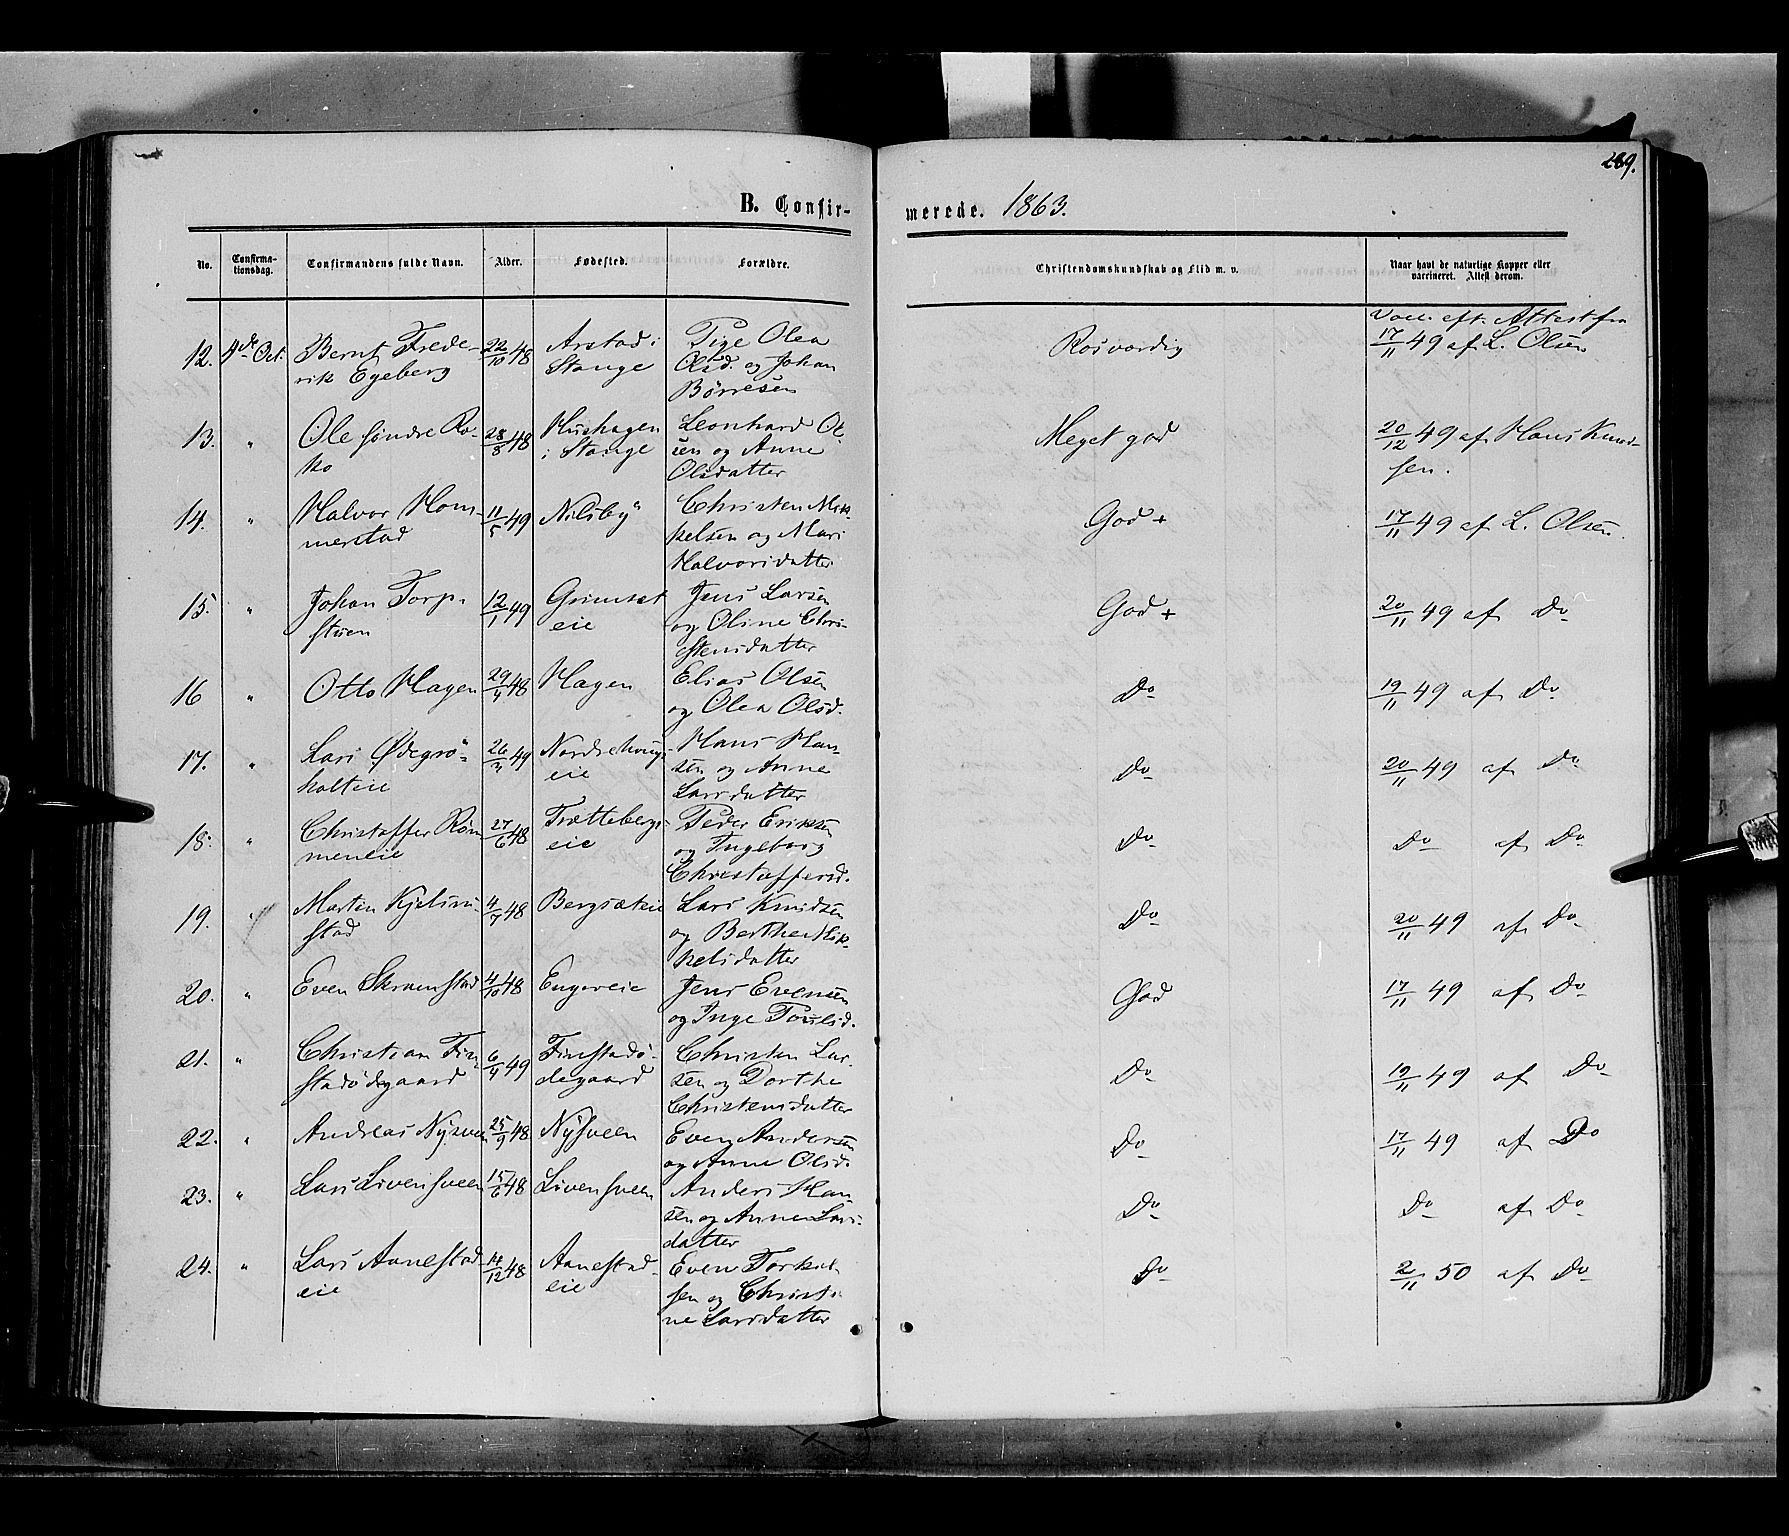 289.
B. Confir-
merede. 1863.
No.
Confirma-
tionsdag.
Confirmandens fulde Navn.
Alder.
Fødested.
Forældre.
Christendomskundskab og Flid m. v.
Naar havt de naturlige Kopper eller
vaccineret. Attest derom.
12. 4de Oct. Bernt Frede-
rik Egeberg
22/10 48
Arstad i
Stange
Pige Olea
Olsd. og Johan
Börresen
Rosværdig
Vacc. eft. Attest fra
17/11 49 af L. Olsen
13. " Ole söndre Ro-
ko
28/8 48
Hushagen
i Stange
Leonhard Ol-
sen og Anne
Olsdatter
Meget god
20/12 49 af Hans Knud-
sen.
14. " Halvor Hom-
merstad
11/5 49
Nilsby
Christen Mik-
kelsen og Mari
Halvorsdatter
God +
17/11 49 af L. Olsen
15. " Johan Torp-
stuen
12/1 49
Grimset
eie
Jens Larsen
og Oline Chri-
stensdatter
God +
20/11 49 af Do
16 " Otto Hagen
29/4 48
Hagen
Elias Olsen
og Olea Olsd.
Do
19/11 49 af Do
17. " Lars Ødegrö-
holteie
26/2 49
Nordre
eie
Hans Han-
sen og Anne
Larsdatter
Do
20/11 49 af Do
18. " Christoffer Röm
meneie
27/6 48
Frættebergs-
eie
Peder Eriksen
og Ingeborg
Christoffersd.
Do
Do af Do
19. " Morten Kjelsrud
stad
4/7 48
Bergsæteie
Lars Knudsen
og Berthe Mik-
kelsdatter
Do
20/11 49 af Do
20. " Even Skramstad
4/10 48
Engereie
Jens Evensen
og Inge Poulsd.
God
17/11 49 af Do
21. " Christian Fin-
stadödegaard
6/4 49
Finstadö-
degaard
Christen Lar-
sen og Dorthe
Christensdatter
Do
19/11 49 af Do
22. " Andreas Nysveen
25/9 48
Nysveen
Even Andersen
og Anne Olsd.
Do
17/11 49 af Do
23. " Lars Livensveen
15/6 48
Livensveen
Anders Han-
sen og Anne Lars-
datter
Do
Do af Do
24. " Lars Aanestad-
eie
14/12 48
Aanestad-
eie
Even Torkel-
sen og Christi-
ne Larsdatter
Do
2/11 50 af Do